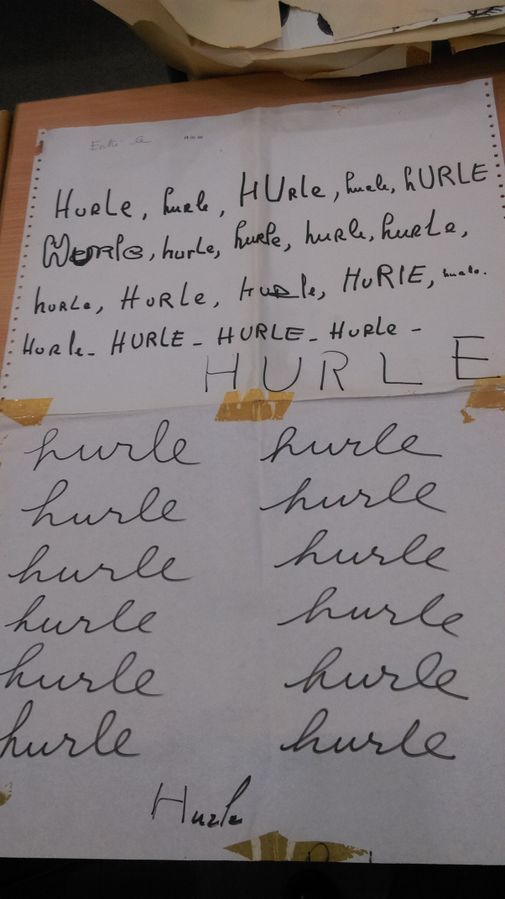 Entré le
HURLe, hurle, HURle, hurle, hURLE
HURle, hurle, hurle, hurle, hurLe,
huRLe, HuRLe, HURle, HURlE, hurle.
HuRle - HURLE - HURLE - HuRle -
HURLE
hurle hurle
hurle hurle
hurle hurle
hurle hurle
hurle hurle
hurle hurle
Hurle